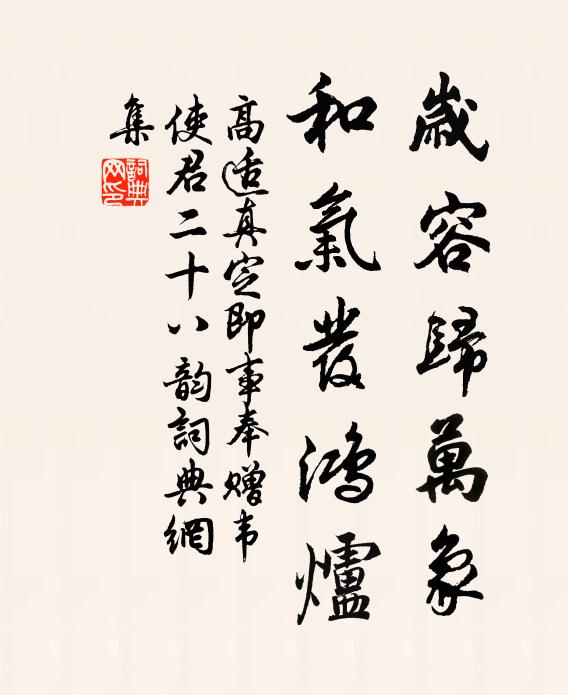 歲容歸萬象
和氣發鴻爐
高适真定即事奉贈韦
使君二十八韵詞典網
集
詞典網印